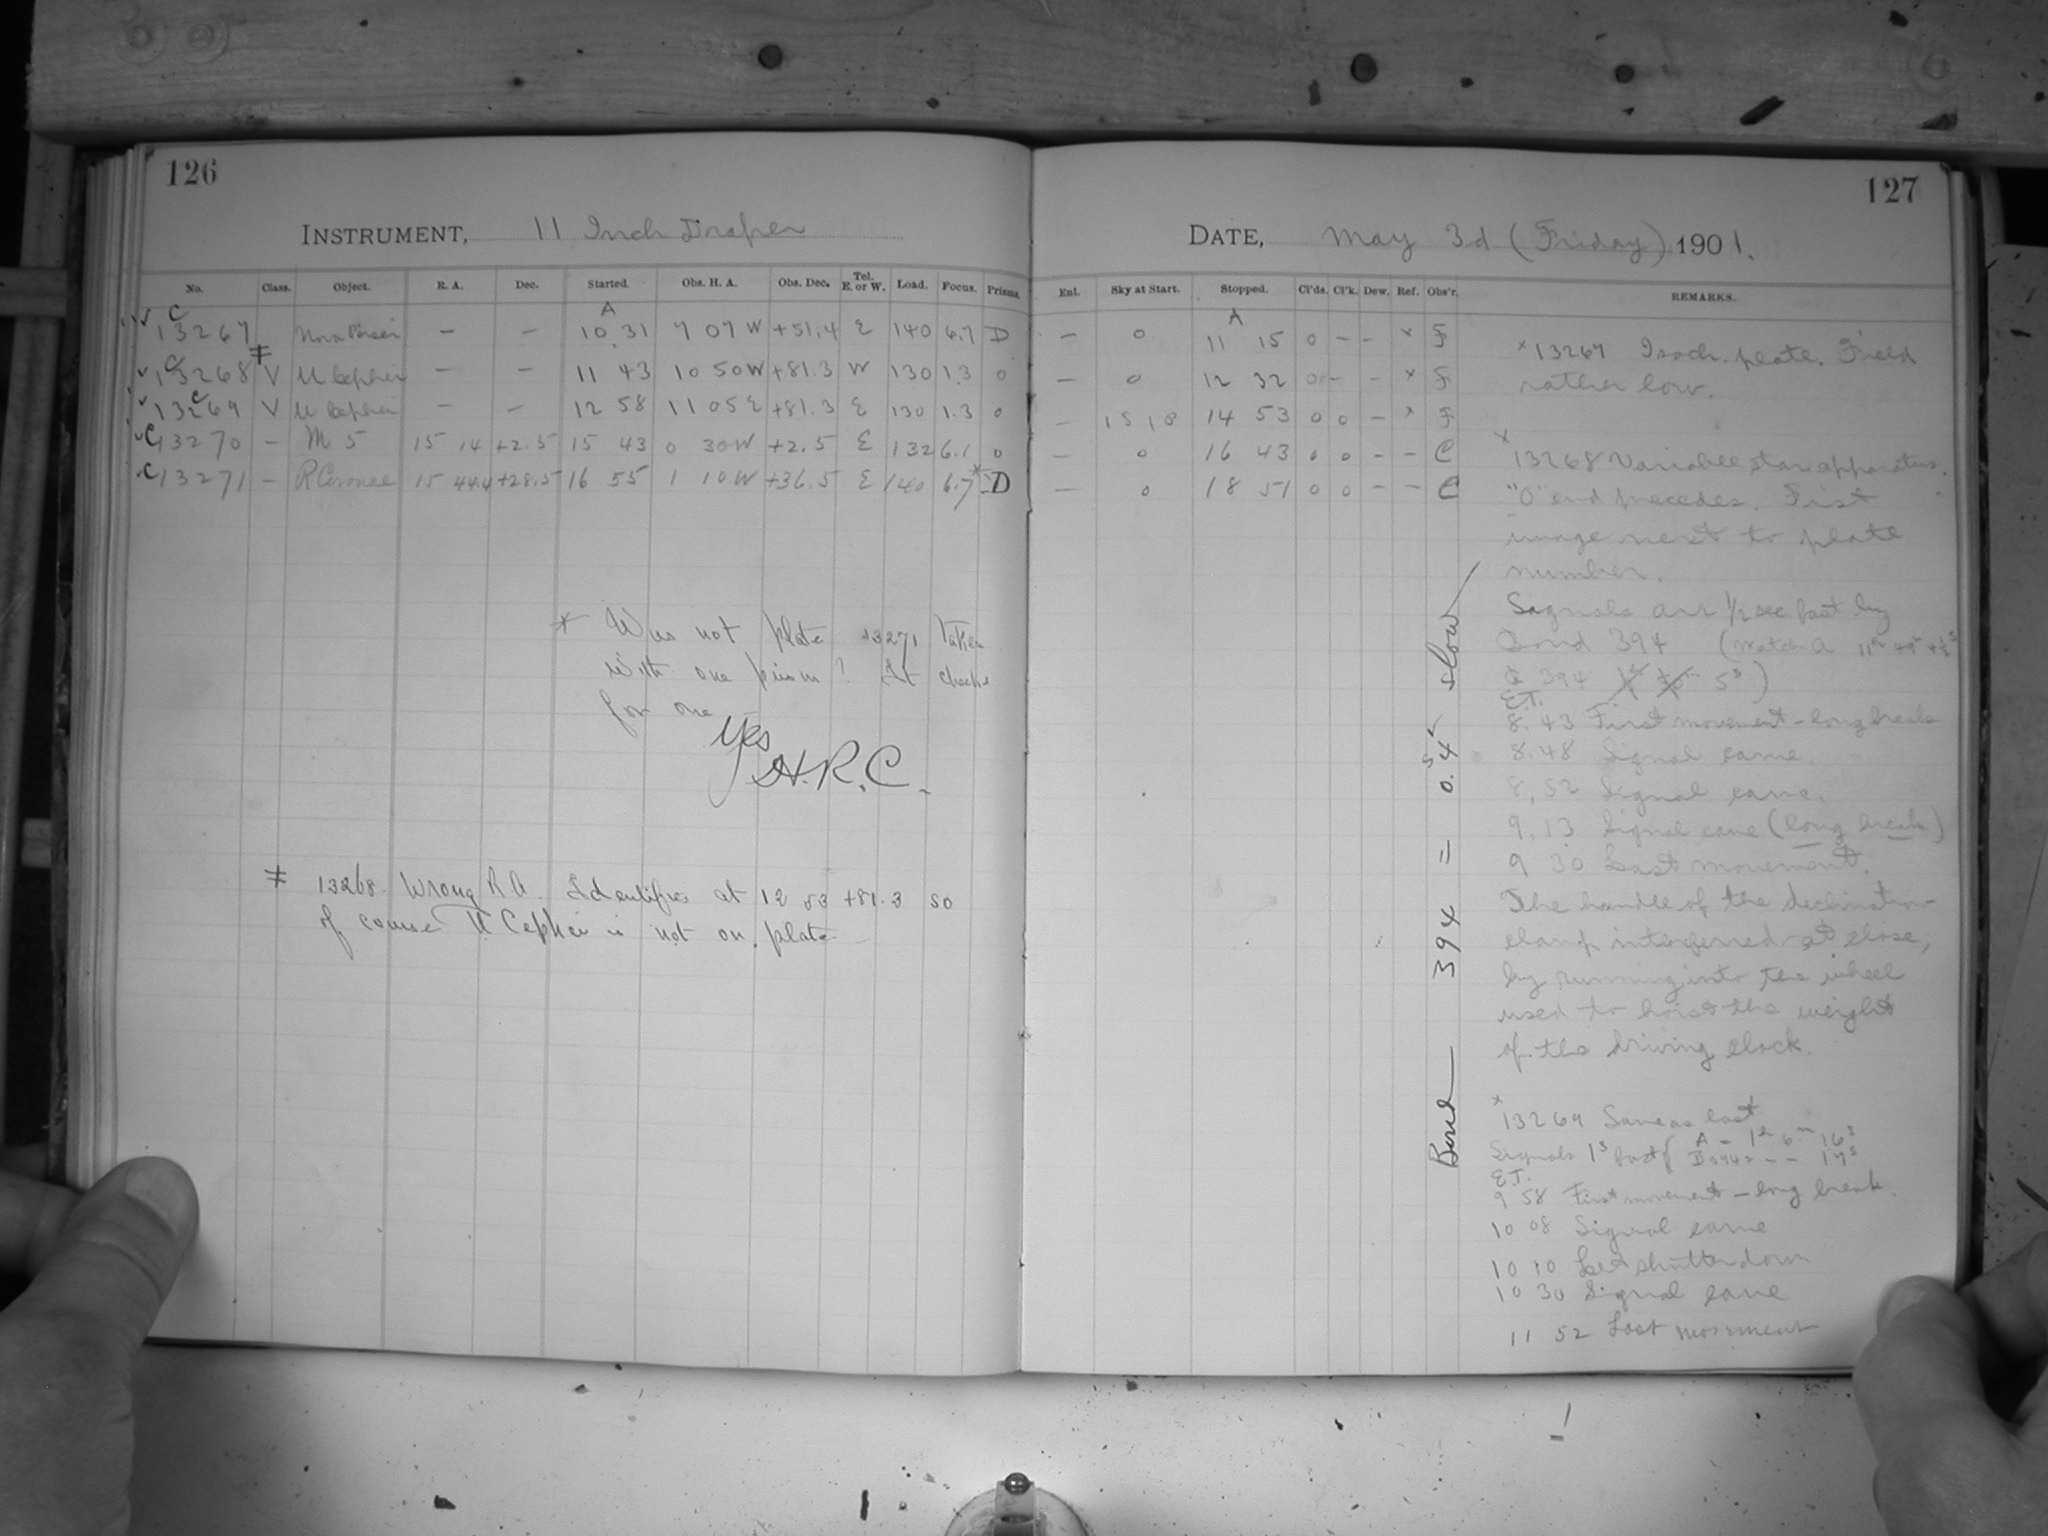 126
INSTRUMENT, 11 Inch Draper
No. Class. Object. R. A. Dec. Started. Obs. H. A. Obs. Dec. Tel. E. or W. Load. Focus. Prisms.
A
C 13267 Nova Persei — — 10 31 7 07 W +51.4 E 140 6.7 D
C 13268 ‡ V U Cephei — — 11 43 10 50 W +81.3 W 130 1.3 0
C 13269 V U Cephei — — 12 58 11 05 E +81.3 E 130 1.3 0
C 13270 — M 5 15 14 +2.5 15 43 0 30 W +2.5 E 132 6.1 0
C 13271 — R Coronae 15 44.4 +28.5 16 55 1 10 W +36.5 E 140 6.7 * D
* Was not plate 13271 taken
with one prism? It checks
for one
Yes
H.R.C.
‡ 13268. Wrong R.A. Identifies at 12 53 +81.3 so
of course U Cephei is not on plate.
127
DATE, May 3d (Friday) 1901.
Enl. Sky at Start. Stopped. Cl'ds. Cl'k. Dew. Ref. Obs'r. REMARKS.
A
— 0 11 15 0 — — x F
— 0 12 32 0 — — x F
— 1518 14 53 0 0 — x F
— 0 16 43 0 0 — — C
— 0 18 51 0 0 — — C
x 13267 Isoch. plate. Field
rather low.
x
13268 Variable star apparatus.
"O" end precedes. First
image next to plate
number.
Signals are 1/2 sec fast by
Bond 394 (Watch A
394 5s)
E.T.
8.43 First movement — long break
8.48 Signal came.
8.52 Signal came.
9.13 Signal came (long break)
9 30 Last movement.
The handle of the declination
clamp interferred at close,
by running into the wheel
used to hoist the weight
of the driving clock.
x
13269 Same as last
Signals 1s fast A = 1h 6m 16s
B 394 = — — 17s
E.T.
9 58 First movement — long break.
10 08 Signal came
10 10 Let shutter down
10 30 Signal came
11 52 Last movement
Bond 394 = 0.45 slow